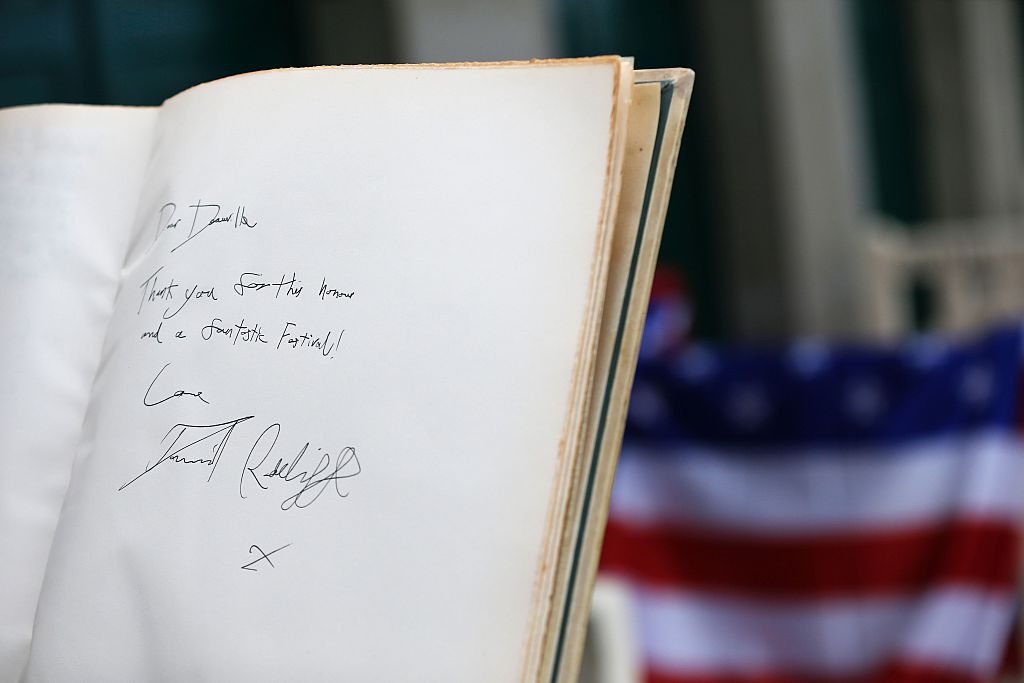 Dear Deauville
Thank you for this honour
and a fantastic Festival!
Love
Daniel Radcliffe
X